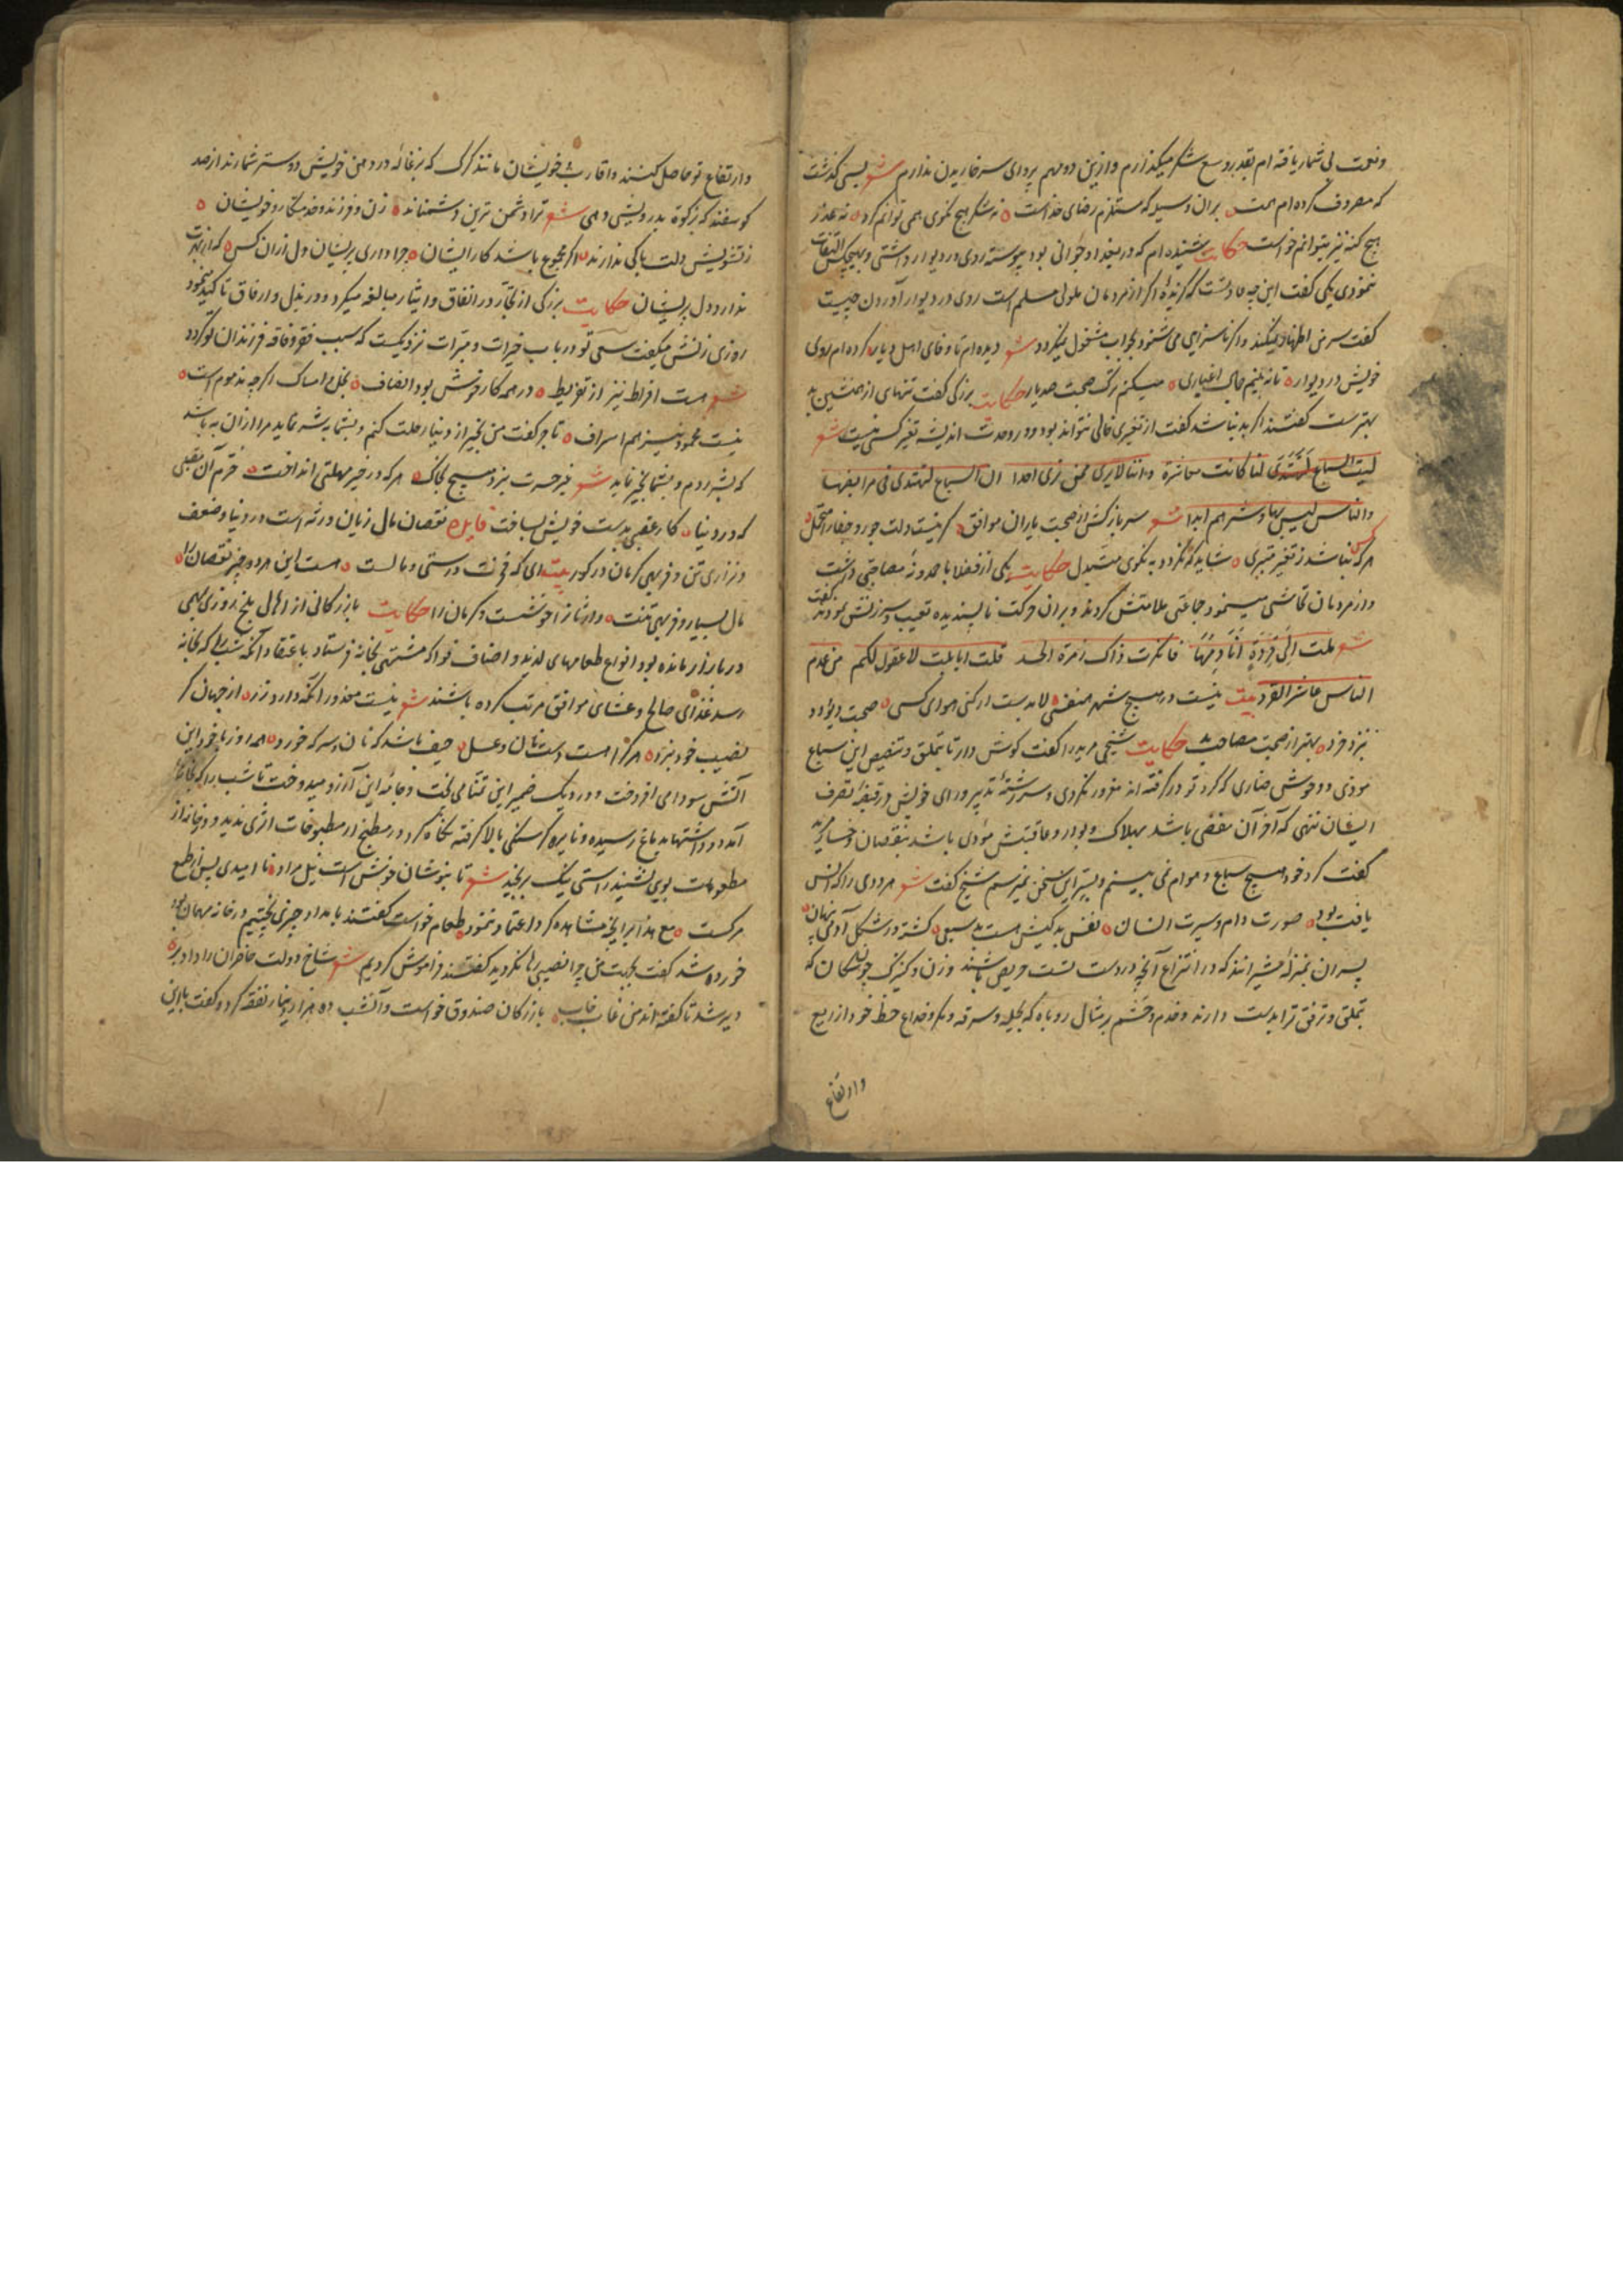 ونعمت بی شمار یافته ام بقدر وسع شکر میگذارم وازین دو مهم پروای سر خاریدن ندارم شعر بسی گذشت
که مصروف کرده ام همت بران وسیله که مستلزم رضای خداست نه شکر هیچ نکوی همی توانم کرد نه عذر
هیچ گنه نیز میتوانم خواست حکایت شنیده ام که در بغداد جوانی بود پیوسته روی در دیوار داشتی و بهیچکس التفات
ننمودی یکی گفت این چه عادتست که گزیدهٔ اگر از مردمان ملولی مسلم است روی در دیوار آوردن چیست
گفت سر من اظهار میکند واگر ناسزایی می شنود بجواب مشغول میگردد شعر دیده ام تا وفای اهل دیار کرده ام روی
خویش در دیوار تا نه بینم جمال اغیاری میکنم ترک صحبت صد یار حکایت بزرگی گفت تنهای از همنشین بد
بهترست گفتند اگر بد نباشد گفت از تغیری خالی نتواند بود و در وحدت اندیشه تغیر کسی نیست شعر
لیت السباع لنا کانت معاشرة واننا لا نری ممن نری احدا ان السباع لتهتدی فی مرابضها
والناس لیس بهاد شرهم ابدا شعر سر باز کش از صحبت یاران موافق گر نیست دلت جور و جفا را متحمل
هر کس که نباشد ز تغیر متبری شاید که نگردد به نکوی متبدل حکایت یکی از فضلا با حمدونهٔ مصاحبتی داشت
واز مردمان تحاشی مینمود جماعتی ملامتش کردند و بران حرکت ناپسندیده تعییب و سرزنش نمودند گفت
شعر ملت الی قردة فانکرت ذاک زمرة الحد قلت اباهلت لا عقول لکم من عدم
الناس عاشر القرد بیت نیست در هیچ شهر همنفسی لابدست ار کنی هوای کسی صحبت دیو ودد
بنزد خرد بهتر از صحبت مصاحب بد حکایت شیخی مرید را گفت گوش دار تا بتملق و تبصبص این سباع
موذی و وحوش ضاری که گرد تو در گرفته اند مغرور نگردی و سررشتهٔ تدبیر و رای خویش در قبضهٔ تصرف
ایشان ننهی که آخر آن مفضی باشد بهلاک و بوار و عاقبتش مؤدی باشد بنقصان و خسار مرید
گفت گرد خود هیچ سباع و هوام نمی بینم و بسر این سخن نمیرسم شیخ گفت شعر مردودی را که انس
یافت بود صورت دام و سیرت انسان نفس بدکیش هست بد سبعی گشته در شکل آدمی پنهان
پسران بمنزلهٔ شیرانند که در انتزاع آنچه در دست تست حریص باشند وزن و کنیزک چون سگان که
بتملق و ترفق ترا بدست دارند و خدم و حشم بر مثال روباه که بحیله و سرقه و مکر و خداع حظ خود از ریع
وارتفاع
وارتفاع تو حاصل کنند واقارب و خویشان مانند گرگ که بزغالهٔ در دهن خویش دوستر شمارند از صد
گوسفند که زکوة بدرویشی دهی شعر ترا دشمن ترین دشمنانند زن و فرزند و خدمتکار و خویشان
ز تشویش دلت باکی ندارند اگر مجموع باشد کار ایشان چرا داری پریشان دل از ان کس که از بهرت
ندارد دل پریشان حکایت بزرگی از تجار در انفاق و ایثار مبالغه میکرد و در بذل و ارفاق تاکید مینمود
روزی زنش میگفت سعی تو در باب خیرات و مبرات نزدیکست که سبب فقر و فاقه فرزندان تو گردد
شعر هست افراط نیز از تفریط در همه کار خوش بود انصاف بخل و امساک اگر چه مذموم است
نیست محمود نیز هم اسراف تاجر گفت من بخیر از دنیا رحلت کنم و بشما بشر عاید مرا از ان به باشد
که بشر روم و بشما خیر عاید شعر غیر حسرت نبرد هیچ بخاک هر که در خیر مهلتی انداخت خرم آن مقبلی
که در دنیا کار عقبی بدست خویش بساخت فایده نقصان مال زیان ورثه است در دنیا و ضعف
و نزاری تن و فربهی کرمان در گور بیت ای که فخرت درستی و مالست هست این هر دو چیز نقصان را
مال بسیار و فربهی تنت وارثانرا خوشست و کرمان را حکایت بازرگانی از اهالی بلخ روزی بمهمی
در بازار مانده بود انواع طعامهای لذید و اصناف فواکه مشتهی بخانه فرستاد باعتقاد آنکه شب را که بخانه
رسد غذای صالح و عشای موافق مرتب کرده باشند شعر نیست معذور آنکه دارد زر از جهان گر
نصیب خود نبرد هر کرا هست دست نان و عسل حیف باشد که نان و سرکه خورد همه روز با خود این
آتش سودا می افروخت و در دیگ ضمیر این تمنا می پخت و جامهٔ این آرزو میدوخت تا شب را که بخانه
آمد در اشتها بدماغ رسیده و نایره گرسنگی بالا گرفته نگاه کرد در مطبخ از مطبوخات اثری ندید و در خانه از
مطعومات بویی نشنید راستی نیک برنجید شعر تا بنوشان خوش است نیل مراد نا امیدی پس از طمع
مرگست مع هذا بر آنچه مشاهده کرد اعتماد ننمود طعام خواست گفتند بامداد چیزی پختیم در خانه مهمان بود
خورده شد گفت بجهت من چرا نصیبی رها نکردید گفتند فراموش کردیم شعر شاخ دولت حاضران را داد بر
دیر شد تا گفته اند من غاب خاب بازرگان صندوق خواست و آنشب ده هزار دینار نفقه کرد و گفت با این